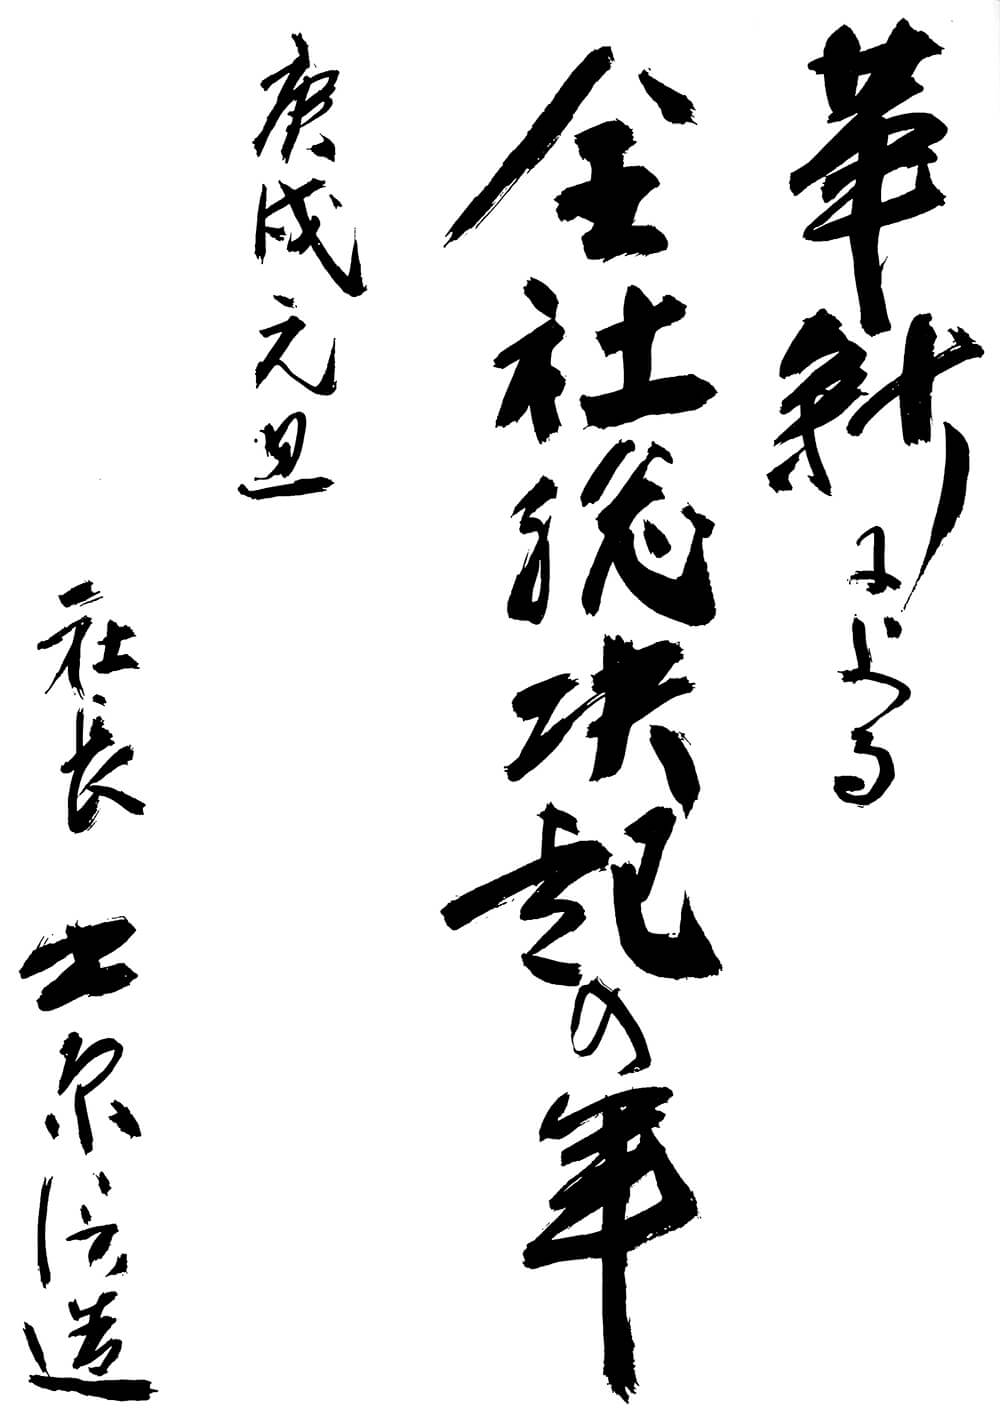 革新による
全社総決起の年
庚戌元旦
社長 上原信造